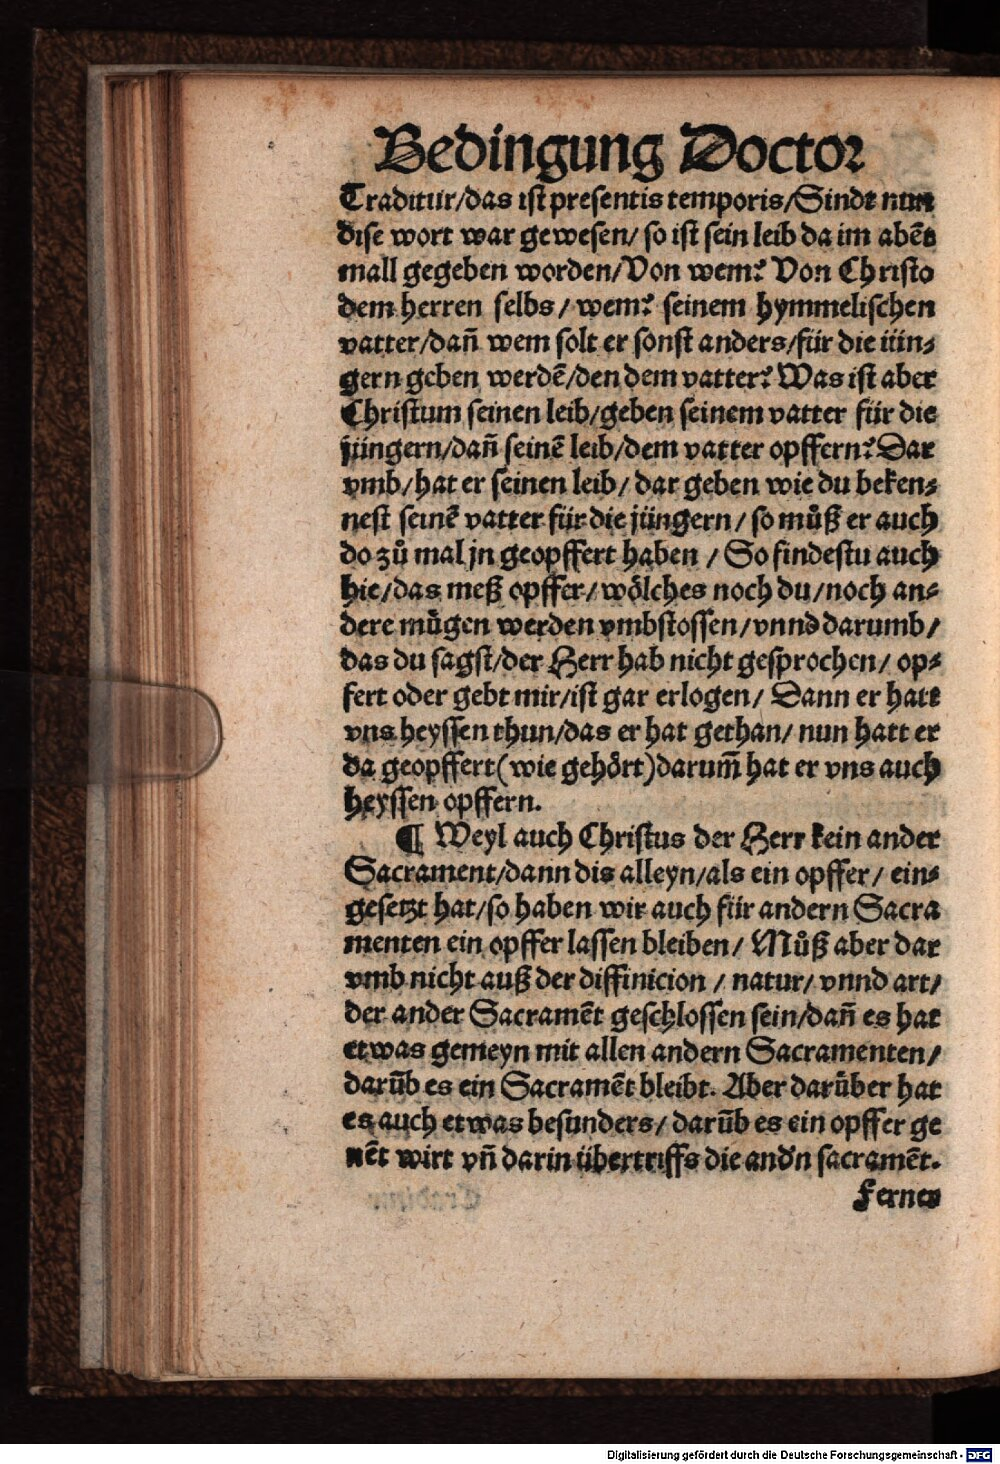 Bedingung Doctor
Traditur/das ist presentis temporis/Sindt nun
dise wort war gewesen/ so ist sein leib da im abēt
mall gegeben worden/Von wem? Von Christo
dem herren selbs/ wem? seinem hymmelischen
vatter/dañ wem solt er sonst anders/für die iün⸗
gern geben werdē/den dem vatter? Was ist aber
Christum seinen leib/geben seinem vatter für die
jüngern/dañ seinē leib/dem vatter opffern? Dar
vmb/hat er seinen leib/ dar geben wie du beken⸗
nest seinē vatter für die jüngern/ so můß er auch
do zů mal jn geopffert haben / So findestu auch
hie/das meß opffer/ wölches noch du/noch an⸗
dere mügen werden vmbstossen/vnnd darumb/
das du sagst/der Herr hab nicht gesprochen/ op⸗
fert oder gebt mir/ist gar erlogen/ Dann er hatt
vns heyssen thun/das er hat gethan/ nun hatt er
da geopffert(wie gehört)darum̄ hat er vns auch
heyssen opffern.
¶ Weyl auch Christus der Herr kein ander
Sacrament/dann dis alleyn/als ein opffer/ ein⸗
gesetzt hat/so haben wir auch für andern Sacra
menten ein opffer lassen bleiben/ Můß aber dar
vmb nicht auß der diffinicion / natur/ vnnd art/
der ander Sacramēt geschlossen sein/dañ es hat
etwas gemeyn mit allen andern Sacramenten/
darūb es ein Sacramēt bleibt. Aber darüber hat
es auch etwas besunders/ darūb es ein opffer ge
nēt wirt vñ darin übertriffs die and'n sacramēt.
Ferner
Digitalisierung gefördert durch die Deutsche Forschungsgemeinschaft - DFG